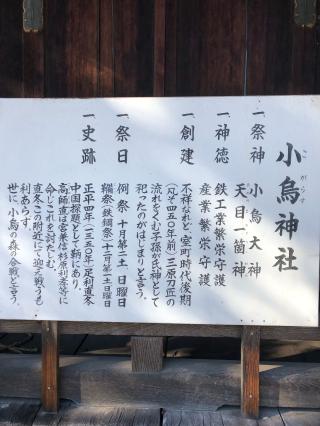 こがらす
小烏神社
一、祭神 小烏大神
天目一箇神
一、神徳 鉄工業繁栄守護
産業繁栄守護
一、創建 不祥なれど、室町時代後期
(凡そ四五〇年前)三原刀匠の
流れをくむ子孫が氏神として
祀ったのがはじまりと言う。
一、祭日 例祭 十月第二土、日曜日
鞴祭(鉄鋼祭)十二月第一土日曜日
一、史跡 正平四年(一三五〇)足利直冬
中国探題として鞆にあり、
高師直は宮兼信杉原利孝等に
命じこれを討たしむ。
直冬この附近にて迎え戦うも
利あらず。
世に、小烏の森の合戦と言う。